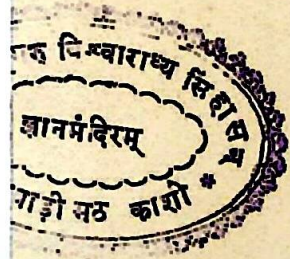 विश्वाराध्य सिंहासन
ज्ञानमंदिरम्
मठ काशी *